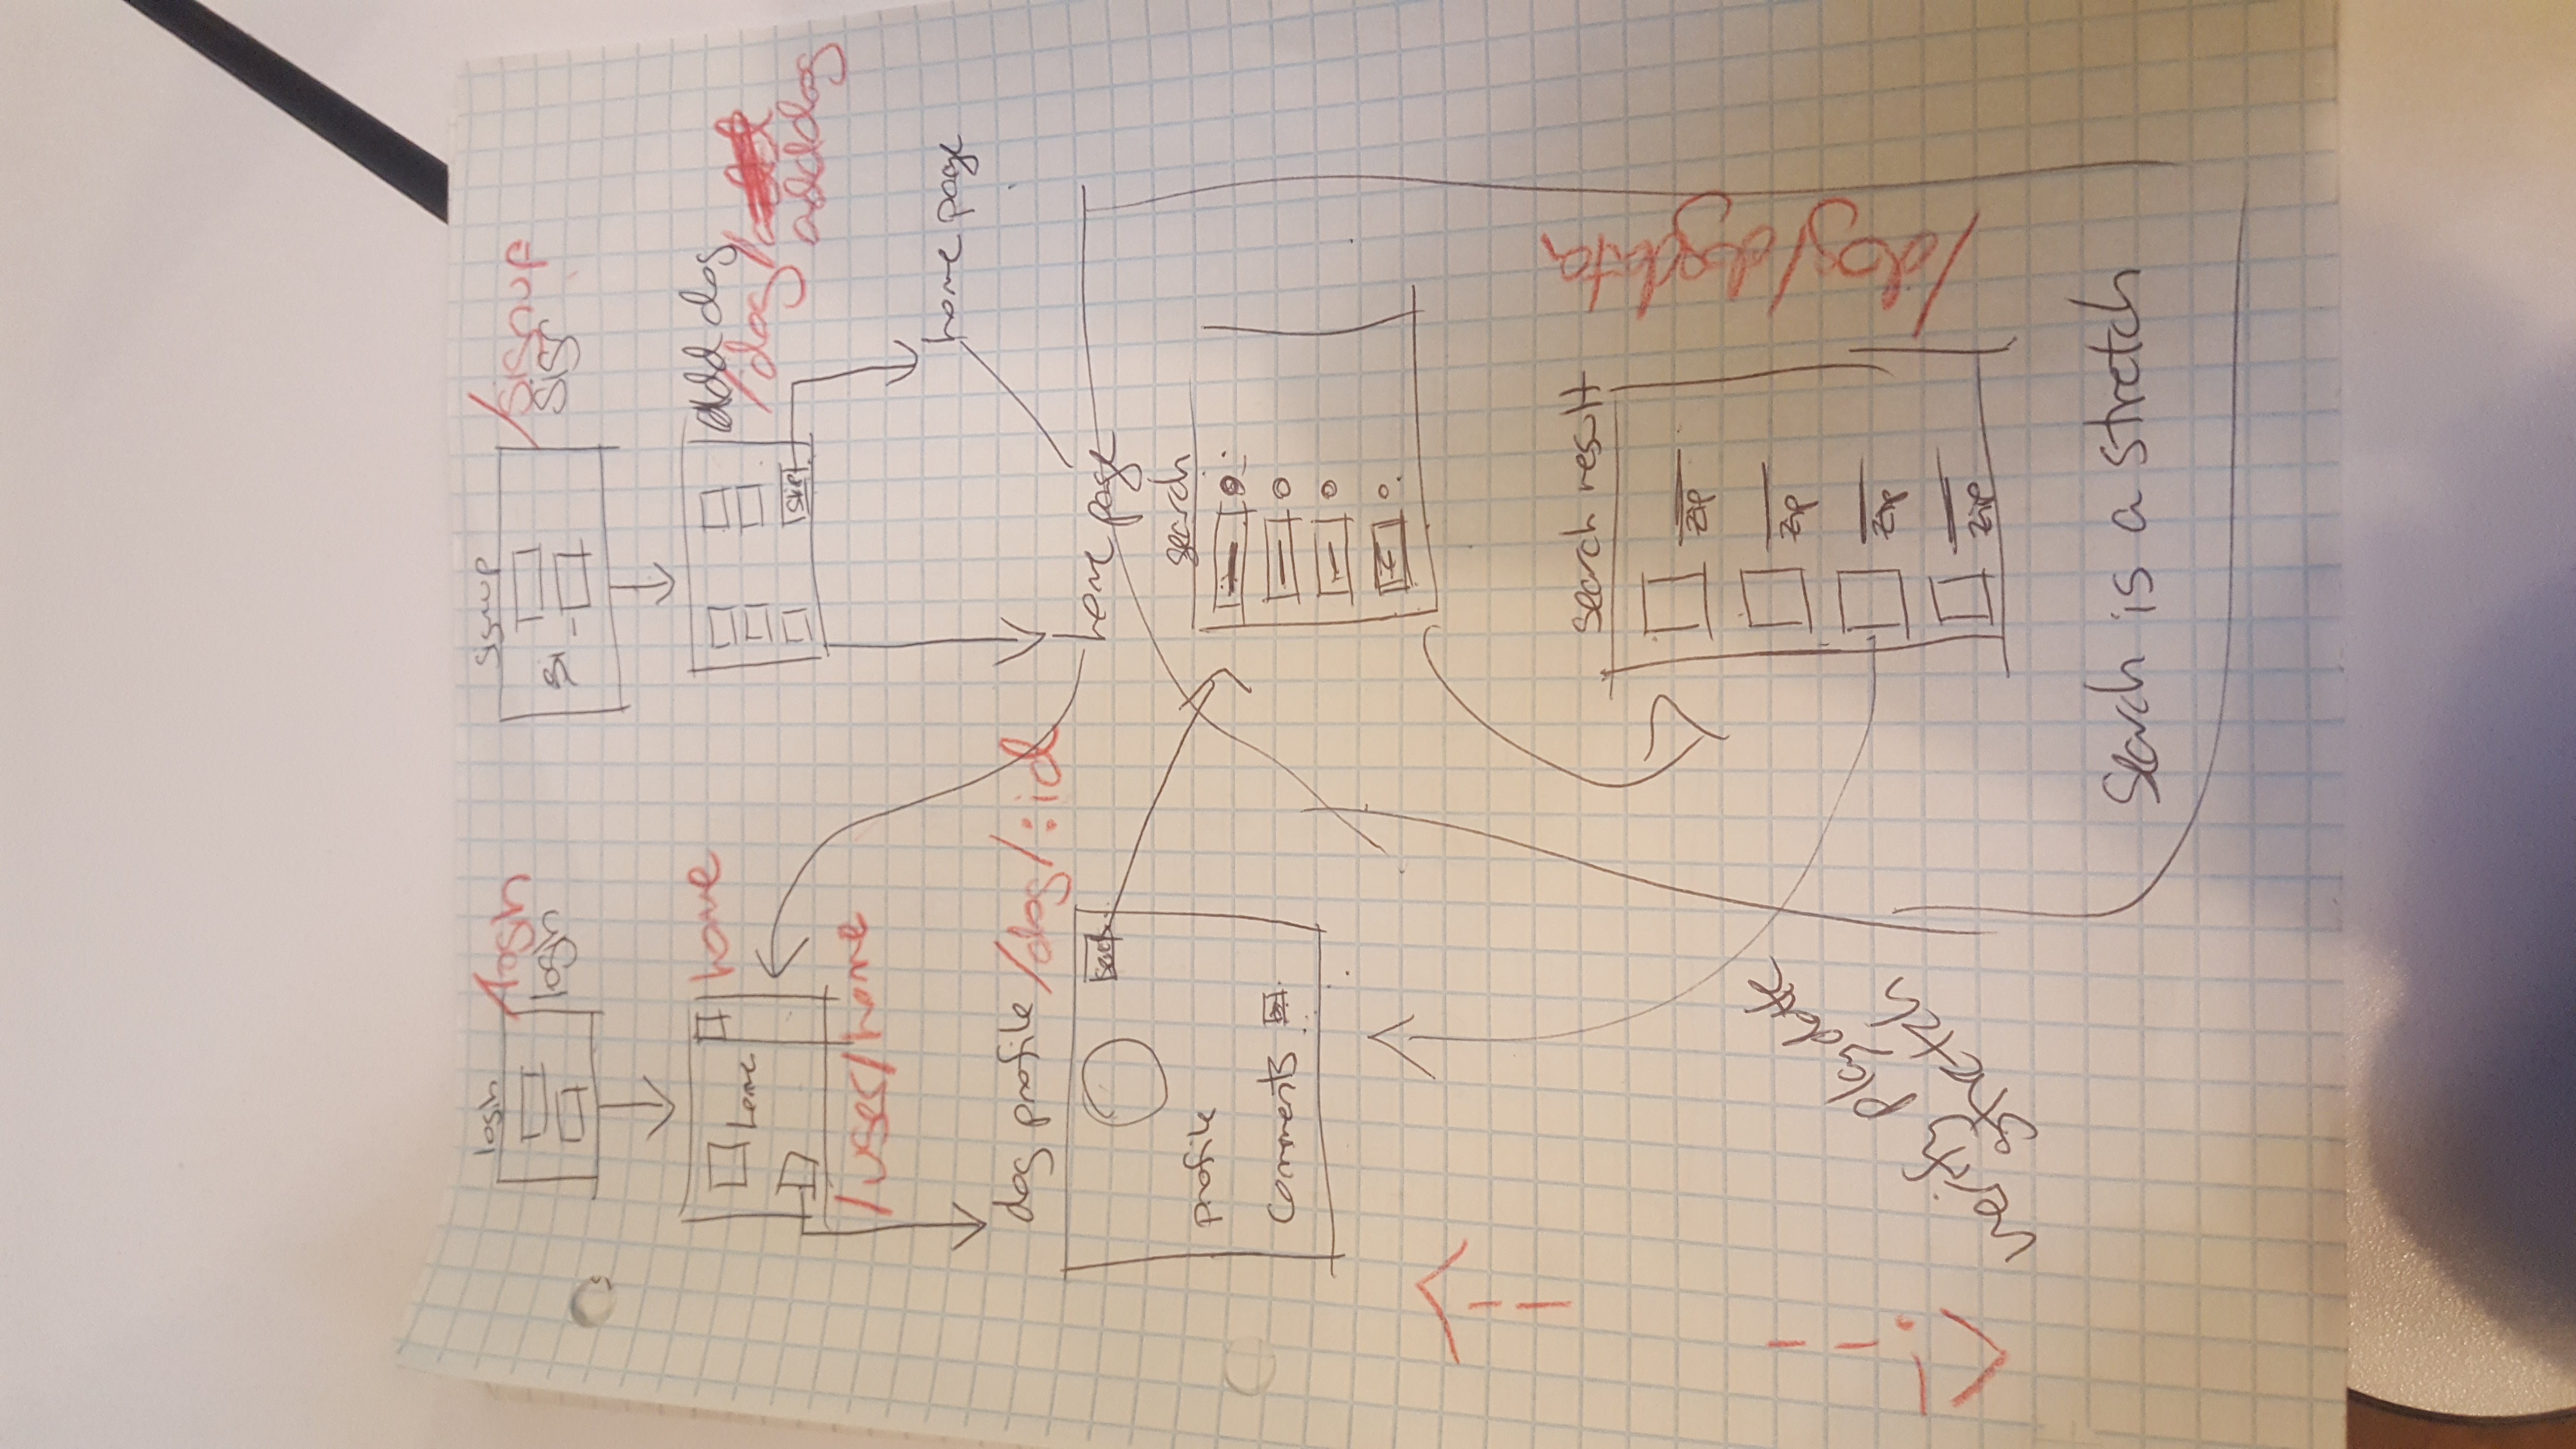 login
/login
login
signup
/signup
Si
sisr
home
home
/user/home
add dog
/dog/
adddog
skip
home page
dog profile /dog/:id
home page
search
profile
comments
search
search result
zip
zip
zip
zip
/dog/dogdata
verify playdate
stretch
Search is a stretch